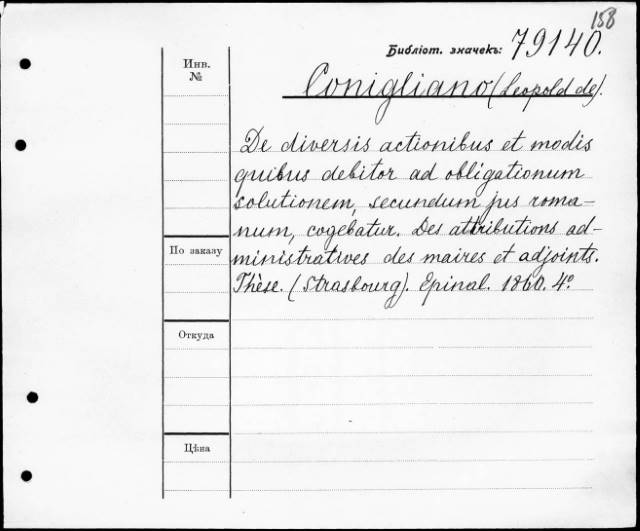 158
Библіот. значекъ: 79140.
Инв.
№
Conigliano (Leopold de).
De diversis actionibus et modis
quibus debitor ad obligationum
solutionem, secundum jus roma-
num, cogebatur. Des attributions ad-
ministratives des maires et adjoints.
Thèse. (Strasbourg). Epinal. 1860. 4°.
По заказу
Откуда
Цѣна